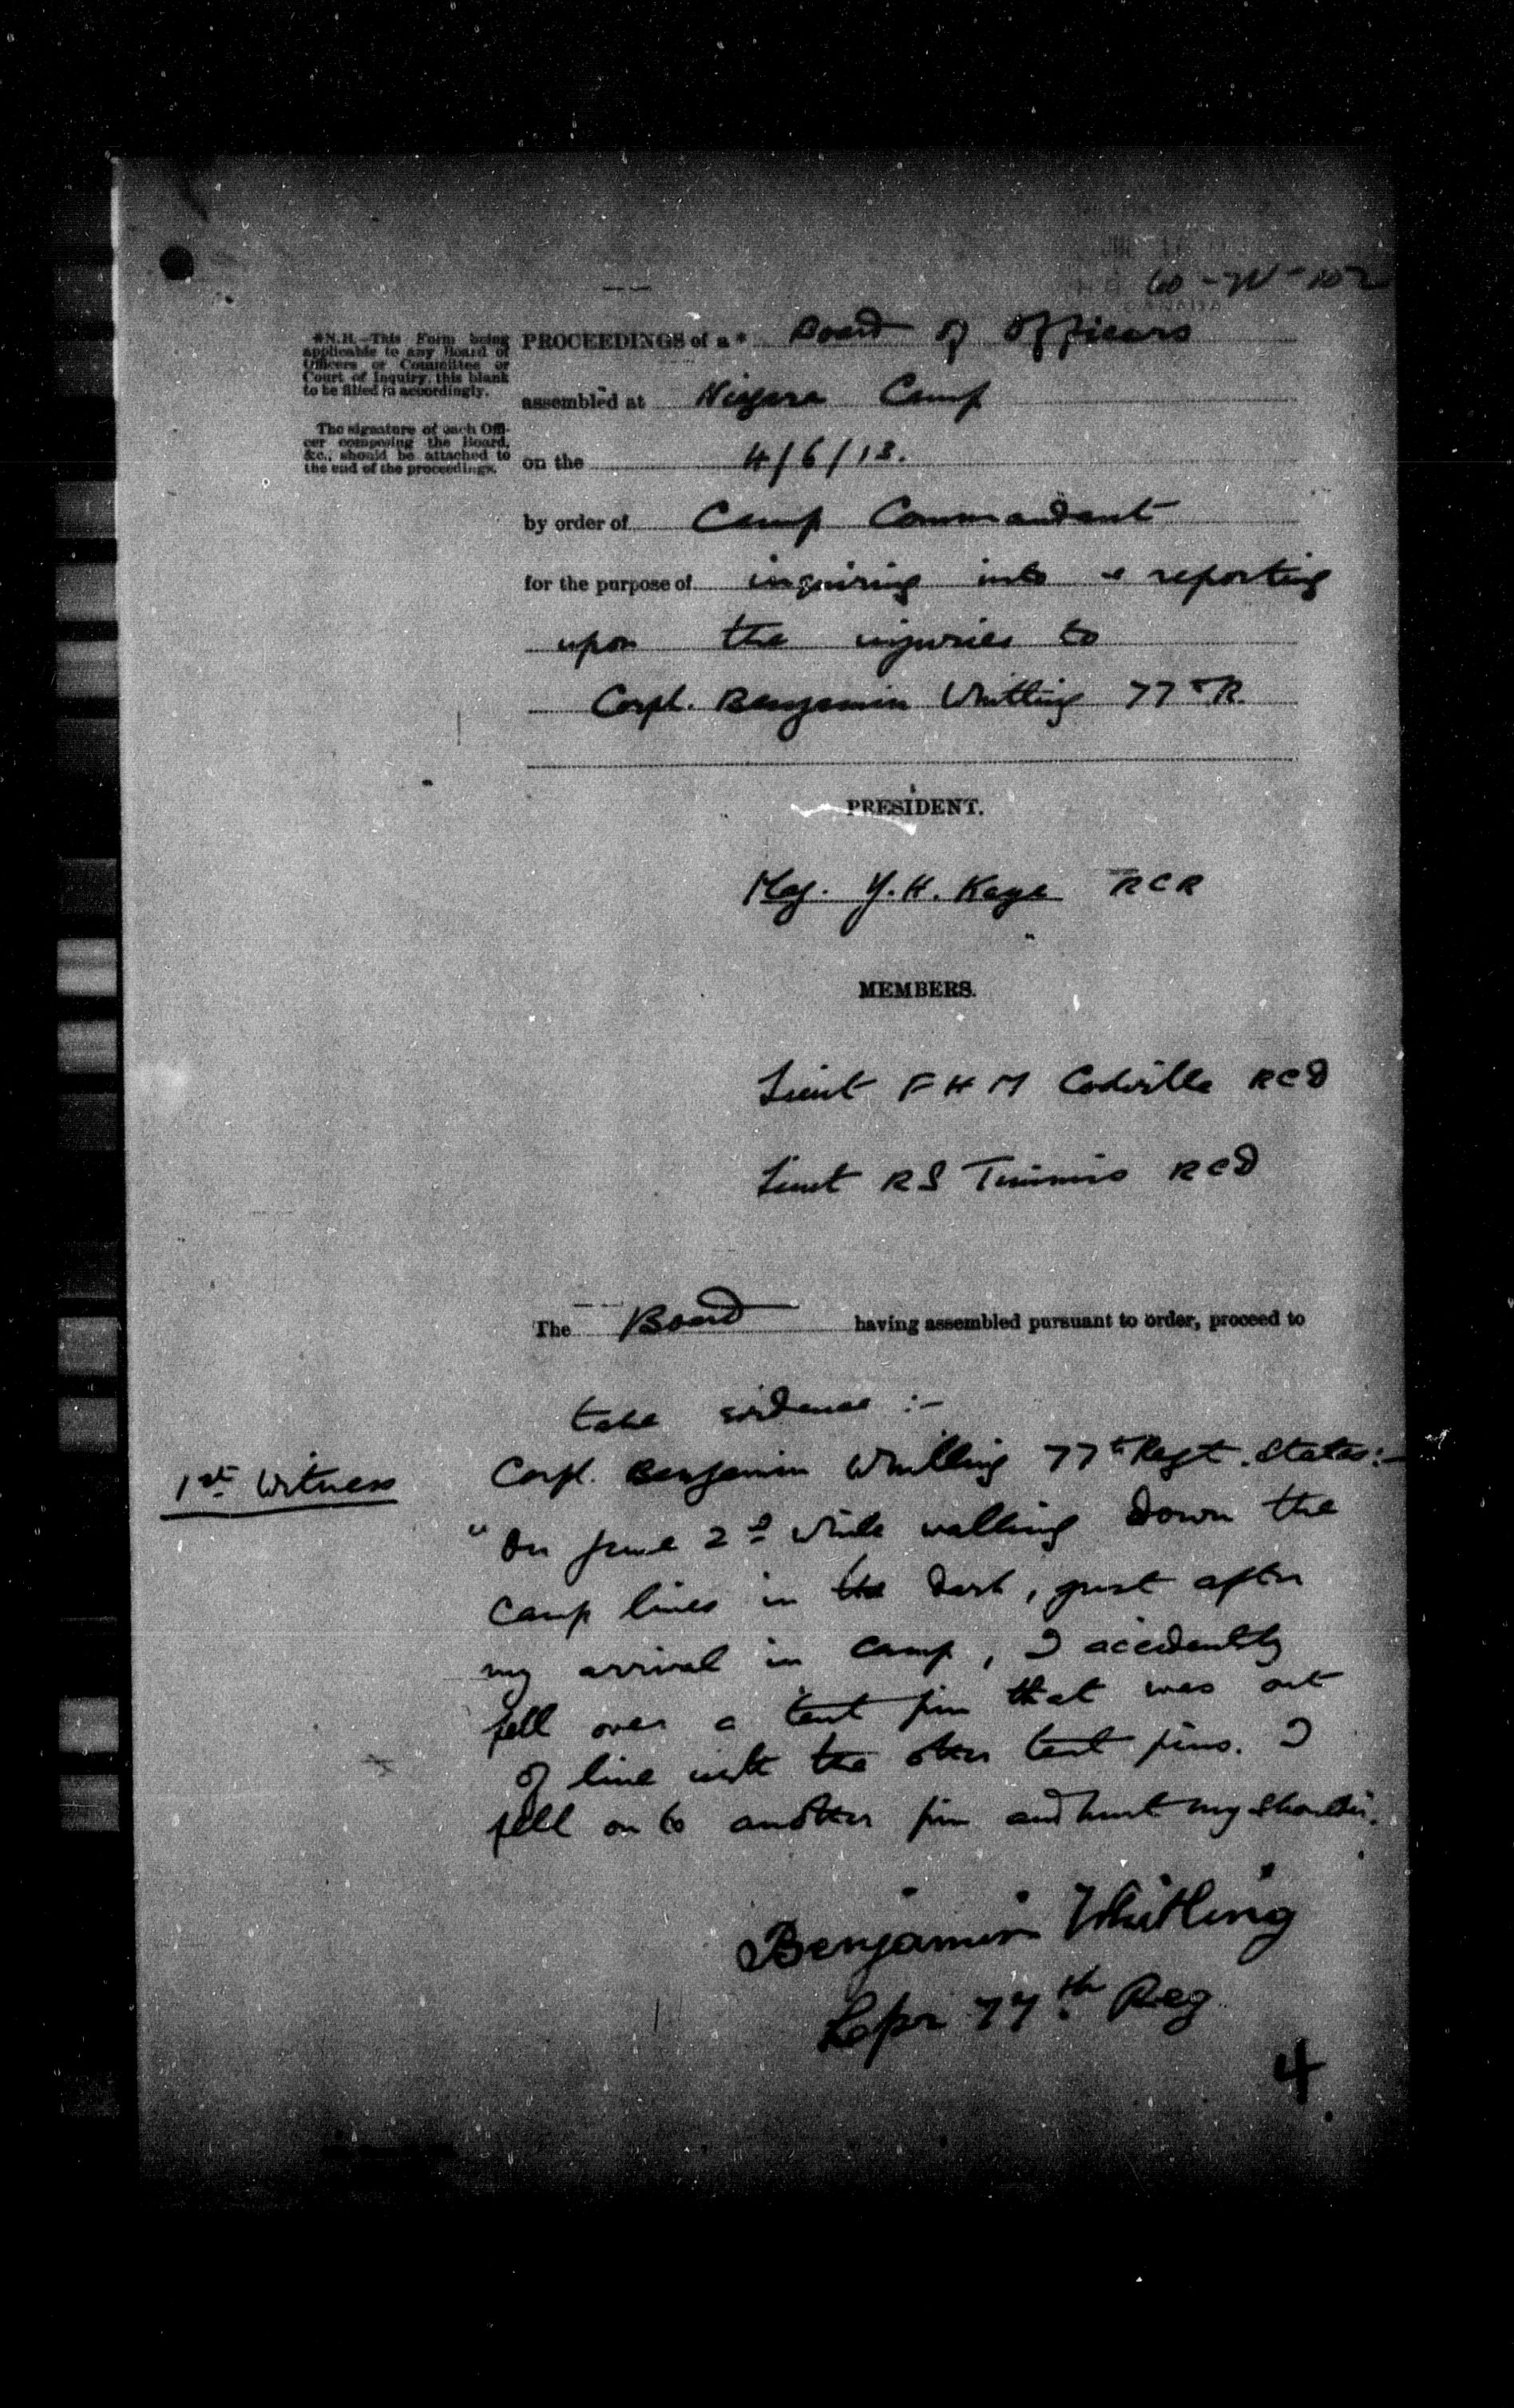 60-W-102
*N.B.—This Form being
applicable to any Board of
Officers or Committee or
Court of Inquiry, this blank
to be filled in accordingly.
The signature of each Offi-
cer composing the Board,
&c., should be attached to
the end of the proceedings.
PROCEEDINGS of a * Board of Officers
assembled at Niagara Camp
on the 4/6/13.
by order of Camp Commandant
for the purpose of inquiring into & reporting
upon the injuries to
Corpl. Benjamin Whitling 77th R.
PRESIDENT.
Maj. Y.H. Kaye RCR
MEMBERS.
Lieut F H M Codville RCD
Lieut R S Timmis RCD
The Board having assembled pursuant to order, proceed to
take evidence :-
1st Witness
Corpl. Benjamin Whitling 77th Regt. States:-
"On June 2d while walking down the
camp lines in the dark, just after
my arrival in camp, I accidently
fell over a tent pin that was out
of line with the other tent pins. I
fell on to another pin and hurt my shoulder.
Benjamin Whitling
77th Reg
4